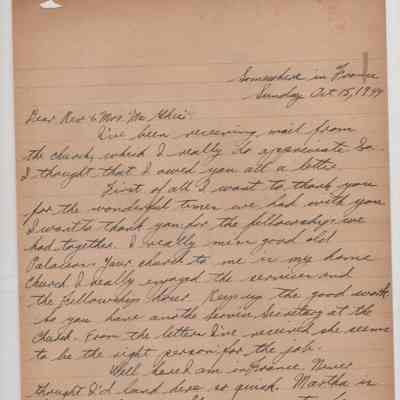 Somewhere in France
Sunday Oct 15, 1944
Dear Rev & Mrs.
I've been receiving mail from
the church, which I really do appreciate So
I thought that I owed you all a letter
First of all I want to thank you
for the wonderful times we had with you
I want to thank you for the fellowship we
had together. I really miss good old
Your church to me is my home
church I really enjoyed the services and
the fellowship hour Keep up the good work
So you have another Service Secretary at the
Church. From the letters I've received she seems
to be the right person for the job.
Well here I am in France. Never
thought I'd land here so quick. Martha is